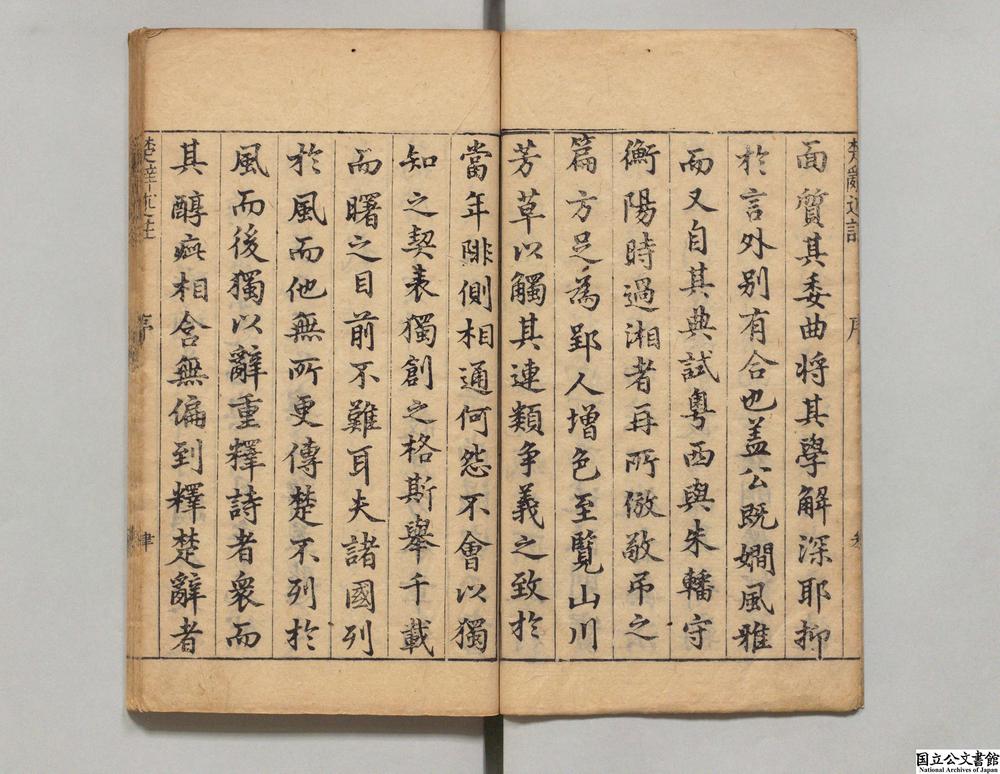 面質其委曲将其學解深耶抑
於言外别有合也盖公既嫺風雅
而又自其典試粤西與朱轓守
衡陽時過湘者再所倣敬吊之
篇方足為郢人增色至覽山川
芳草以觸其連類争義之致於
當年陫側相通何怨不會以獨
知之契表獨創之格斯舉千載
而曙之目前不難耳夫諸國列
於風而他無所更傳楚不列於
風而後獨以辭重釋詩者衆而
其醇疵相含無偏到釋楚辭者
序
國立公文書館
National Archives of Japan